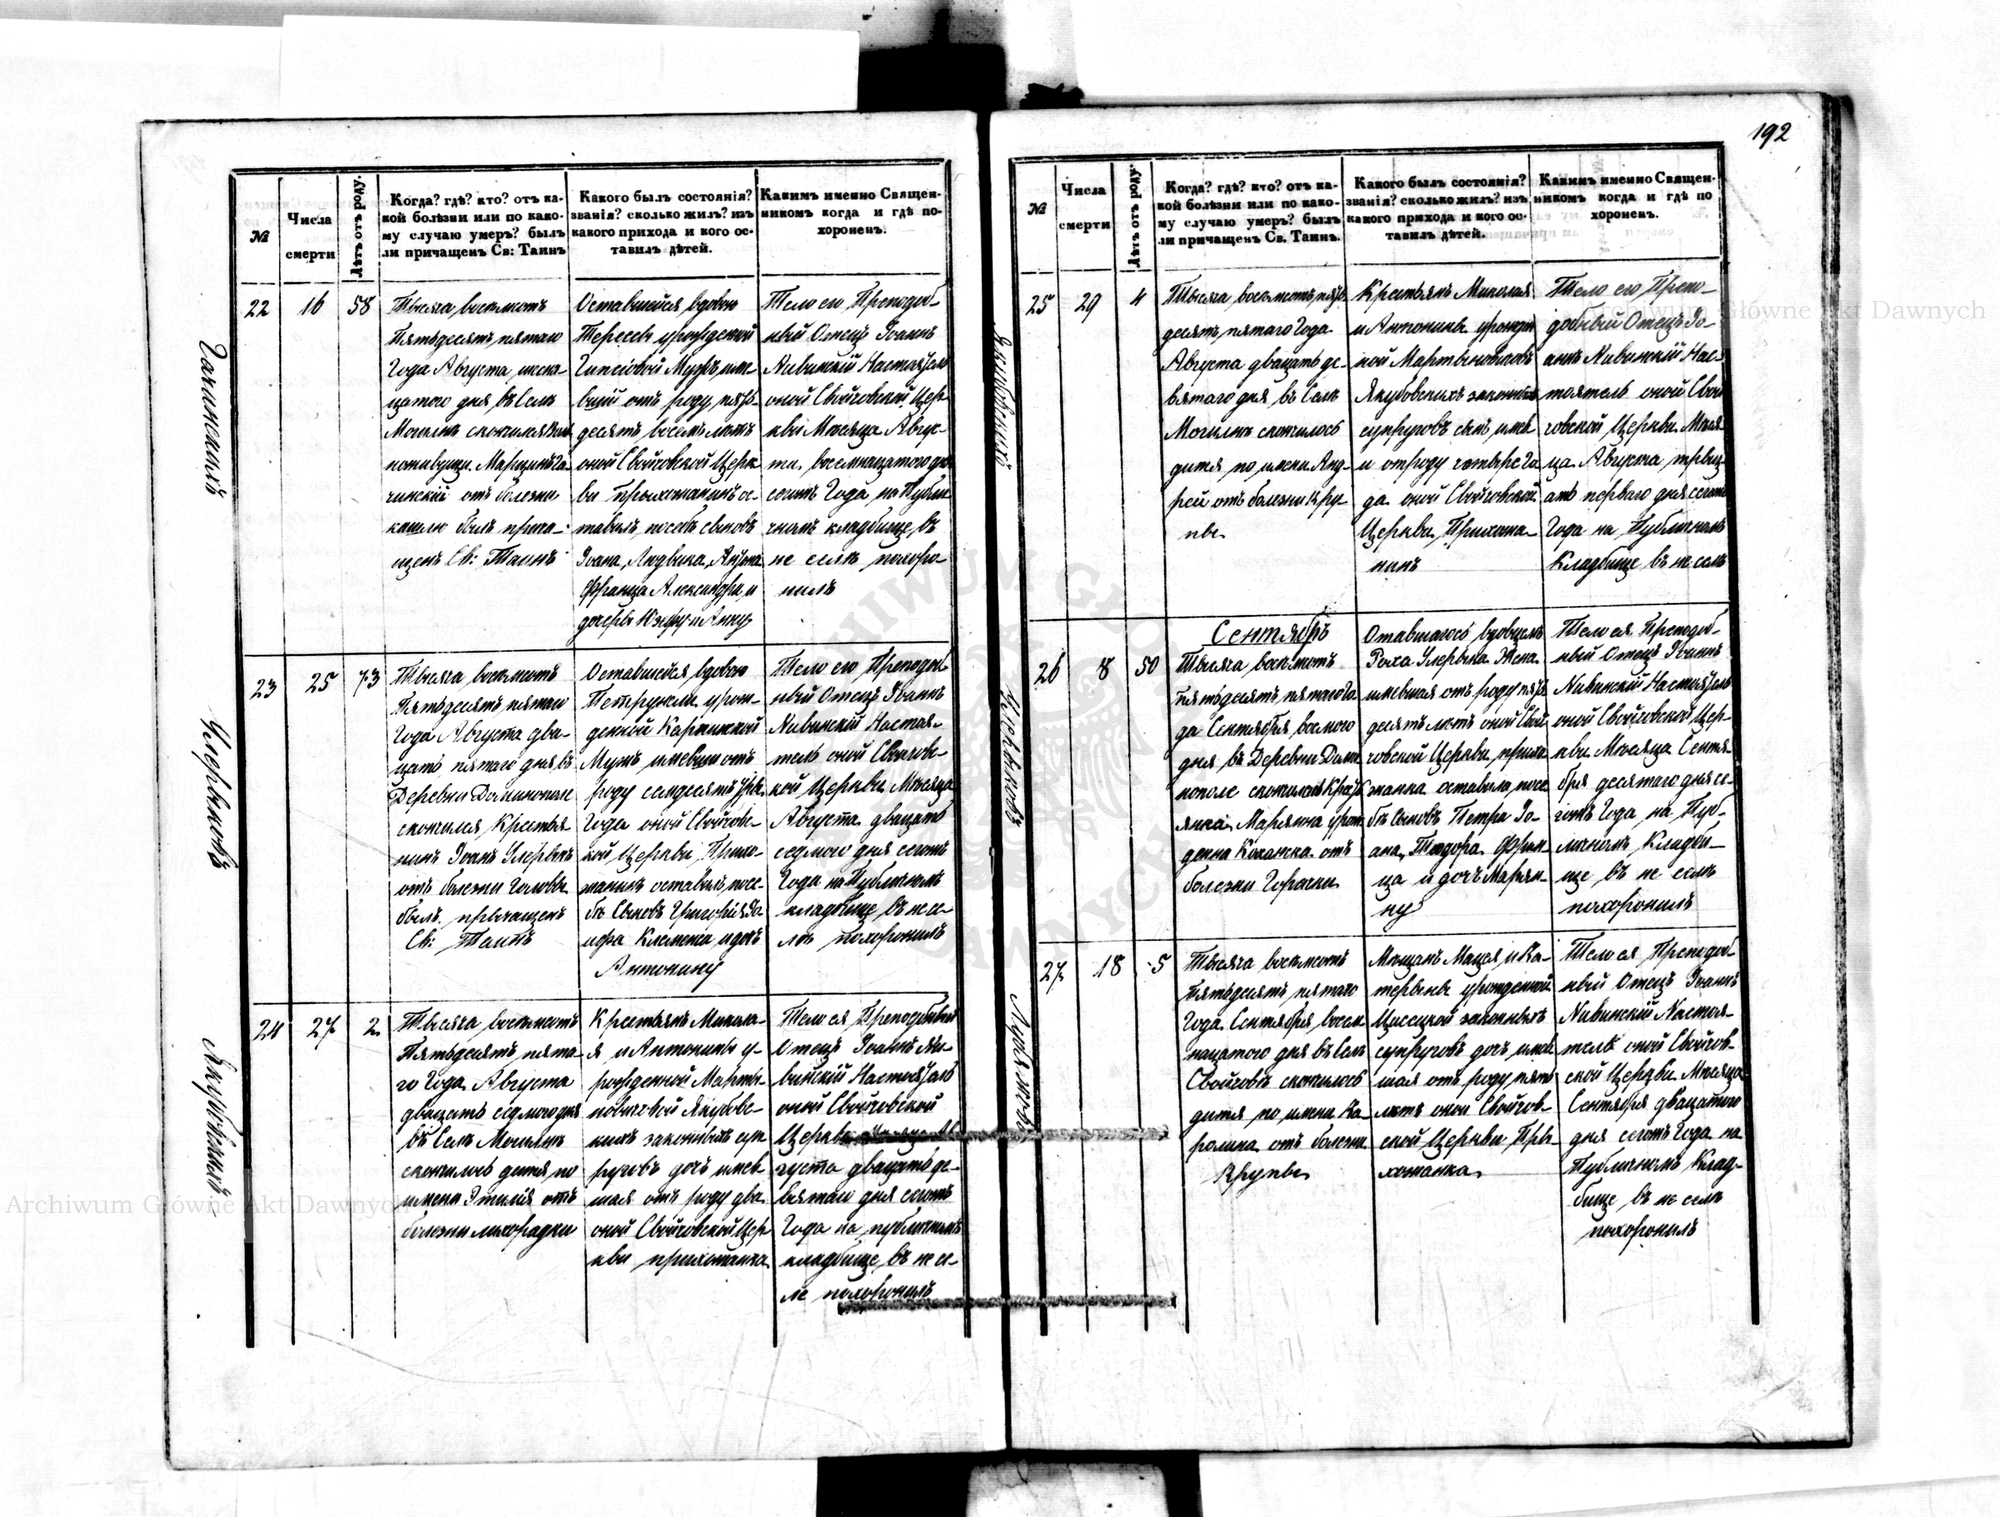 192
№
Числа
смерти
Лѣтъ отъ роду.
Когда? гдѣ? кто? отъ ка-
кой болѣзни или по како-
му случаю умеръ? былъ
ли причащенъ Св: Таинъ
Какого былъ состоянія?
званія? сколько жилъ? изъ
какого прихода и кого ос-
тавилъ дѣтей.
Какимъ именно Священ-
никомъ когда и гдѣ по-
хороненъ.
22
16
58
Тысяча восемсотъ
Пятьдесятъ пятаго
Года Августа шесна
цатого дня, въ Селѣ
Могилнѣ скончился
Марцинъ Га
чинскій отъ болезни
кашлю былъ прича-
щенъ Св: Таинъ
Оставшейся вдовою
Тересы урожденой
Мужъ, име
вшій отъ роду, пятьде
десятъ восемъ летъ
оной Свойчовской Церк
ви прихожанинъ ос
тавилъ, посебѣ сыновъ
Іоана, Людвика, Антона
Франца Александра, и
дочеръ Юзефу и Анну
Тело его Преподоб-
ный Отецъ Іоаннъ
Нивинскій Настоятель
оной Свойчовской Цер
кви Месяца Авгус-
та восемнацатого дня
сегожъ Года, на Публи
чномъ кладбище, въ
не селѣ похоро-
нилъ
Гачинскій
23
25
73
Тысяча восемсотъ
Пятьдесятъ пятаго
Года Августа два-
цать пятого дня въ
Деревни Доминополе
скончился Крестья
нинъ Іоанъ
отъ болезни Головы
былъ причащенъ
Св: Таинъ
Оставшейся вдовою
Петрунели урож-
денной
Мужъ имевши отъ
роду семдесятъ три
Года оной Свойчовс-
кой Церкви Прихо-
жанинъ оставилъ посе-
бѣ Сыновъ Григорія Іо
сифа Клемента, и дочъ
Антонину
Тело его Преподоб-
ный Отецъ Іоаннъ
Нивинскій Настоя-
тель оной Свойчовс-
кой Церкви Месяца
Августа двацать
седмого дня сегожъ
Года на Публичномъ
кладбище въ не се-
лѣ похоронилъ
24
27
2
Тысяча восемсотъ
Пятьдесятъ пята-
го Года Августа
двацать седмого дня
въ Селѣ Могилнѣ
скончилось дитя по
имени Эмилія отъ
болезни лихорадки
Крестьянъ Микола-
я и Антонины у-
рожденной Марты-
новичовой Якубовс-
кихъ законныхъ суп
руговъ дочъ имев-
шая отъ роду два
оной Свойчовской Цер
кви прихожанка
Тело ея Преподобный
Отецъ Іоаннъ Ни-
винскій Настоятель
оной Свойчовской
Церкви Месяца Ав
густа двацать де-
вятаго дня сегожъ
Года на публичномъ
кладбище, въ не се-
ле похоронилъ
Якубовская
№
Числа
смерти
Лѣтъ отъ роду.
Когда? гдѣ? кто? отъ ка-
кой болѣзни или по како-
му случаю умеръ? былъ
ли причащенъ Св. Таинъ.
Какого былъ состоянія?
званія? сколько жилъ? изъ
какого прихода и кого ос-
тавилъ дѣтей.
Какимъ именно Священ-
никомъ когда и гдѣ по
хороненъ.
25
29
4
Тысяча восемсотъ пять
десятъ пятаго Года
Августа двацать де-
вятаго дня въ Селѣ
Могилнѣ скончилось
дитя, по имени Анд-
рей отъ болезни Кру-
пы
Крестьянъ Миколая
и Антонины урожден
ной Мартыновичовъ
Якубовскихъ законныхъ
супруговъ сынъ имев
и отроду четыре Го
да оной Свойчовской
Церкви, Прихожа-
нинъ
Тело его Препо-
добный Отецъ Іо-
анъ Нивинскій Нас-
тоятель оной Свой
човской Церкви Меся
ца Августа, трыц-
ать перваго дня сегожъ
Года на Публичномъ
Кладбище въ не селѣ
26
8
50
Сентябрь
Тысяча восемсотъ
пятьдесятъ пятаго Го
да Сентября восмого
дня въ Деревни Доми
нополе скончилась Кресть
янка Маріянна урож
денна отъ
болезни Горячки
Ставшагось вдовцемъ
Роха Жена
имевшая отъ роду пять
десятъ летъ оной Свой
човской Церкви, прихо
жанка оставила посе
бѣ Сыновъ Петра Іо-
ана, Теодора, Фран-
ца и дочъ Маріян-
ну
Тело ея Преподоб-
ный Отецъ Іоаннъ
Нивинскій Настоятель
оной Свойчовской Цер-
кви Месяца Сентя-
бря десятаго дня се-
гожъ Года, на Пуб-
личномъ Кладби-
ще въ не селѣ
похоронилъ
27
18
5
Тысяча восемсотъ
пятьдесятъ пятаго
Года Сентября восем
нацатого дня въ Селѣ
Свойчовѣ скончилось
дитя по имени Ка-
ролина отъ болезни
Крупы
Мещанъ Мацея и Ка-
терыны урожденной
законныхъ
супруговъ дочъ имев
шая отъ роду пять
летъ оной Свойчов-
ской Церкви При
хожанка
Тело ея Преподоб-
ный Отецъ Іоаннъ
Нивинскій Настоя-
тель оной Свойчов-
ской Церкви Месяца
Сентября двацатого
дня сегожъ Года на
Публичномъ Клад-
бище въ не селѣ
похоронилъ
Archiwum Główne Akt Dawnych
Archiwum Główne Akt Dawnych